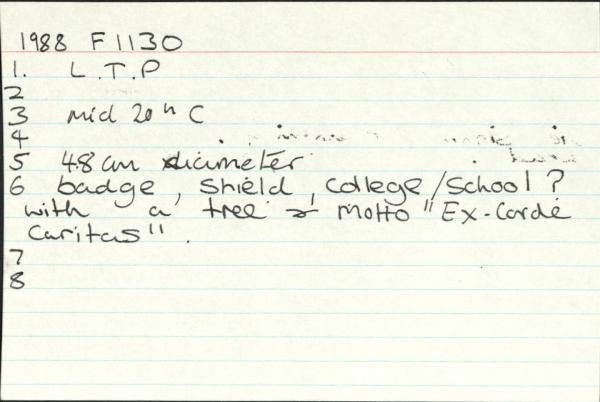 1988 F1130
1. L.T.P
2
3 mid 20th C
4
5 48cm diameter
6 badge, shield, college/school?
with a tree & motto "Ex-Corde
Caritas".
7
8